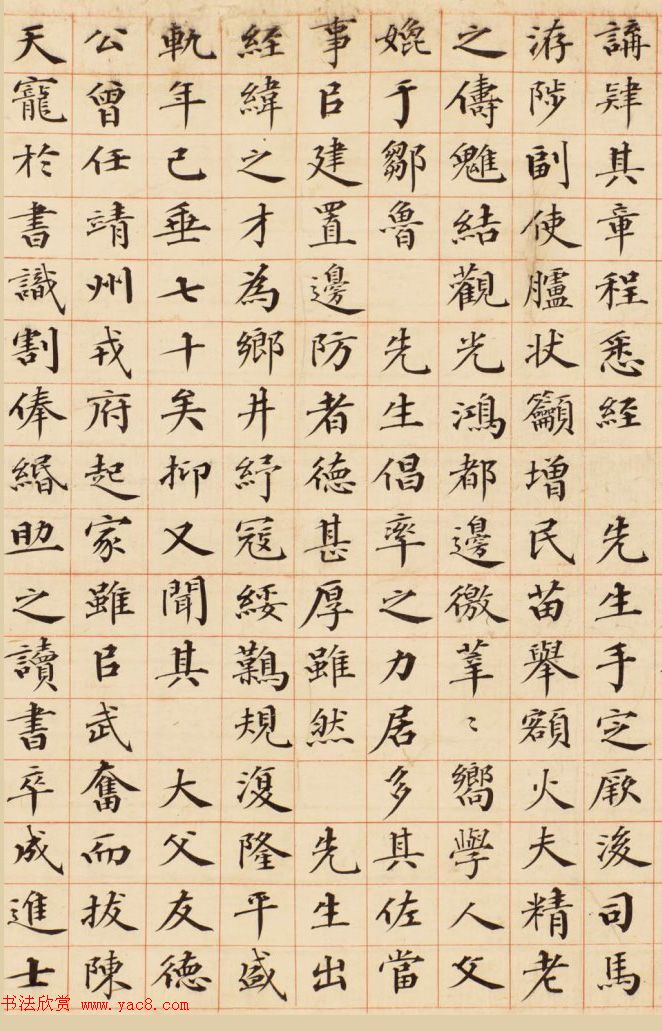 講肄其章程悉經 先生手定厥後司馬
洊陟副使臚狀籲增民苗舉額火夫精老
之儔魋結觀光鴻都邊徼莘〻嚮學人文
媲于鄒魯 先生倡率之力居多其佐當
事㠯建置邊防者德甚厚雖然 先生出
經緯之才為鄉井紓寇綏難規復隆平盛
軌年已垂七十矣抑又聞其 大父友德
公曾任靖州戎府起家雖㠯武奮而拔陳
天寵於書識割俸緡助之讀書卒成進士
书法欣赏 www.yac8.com